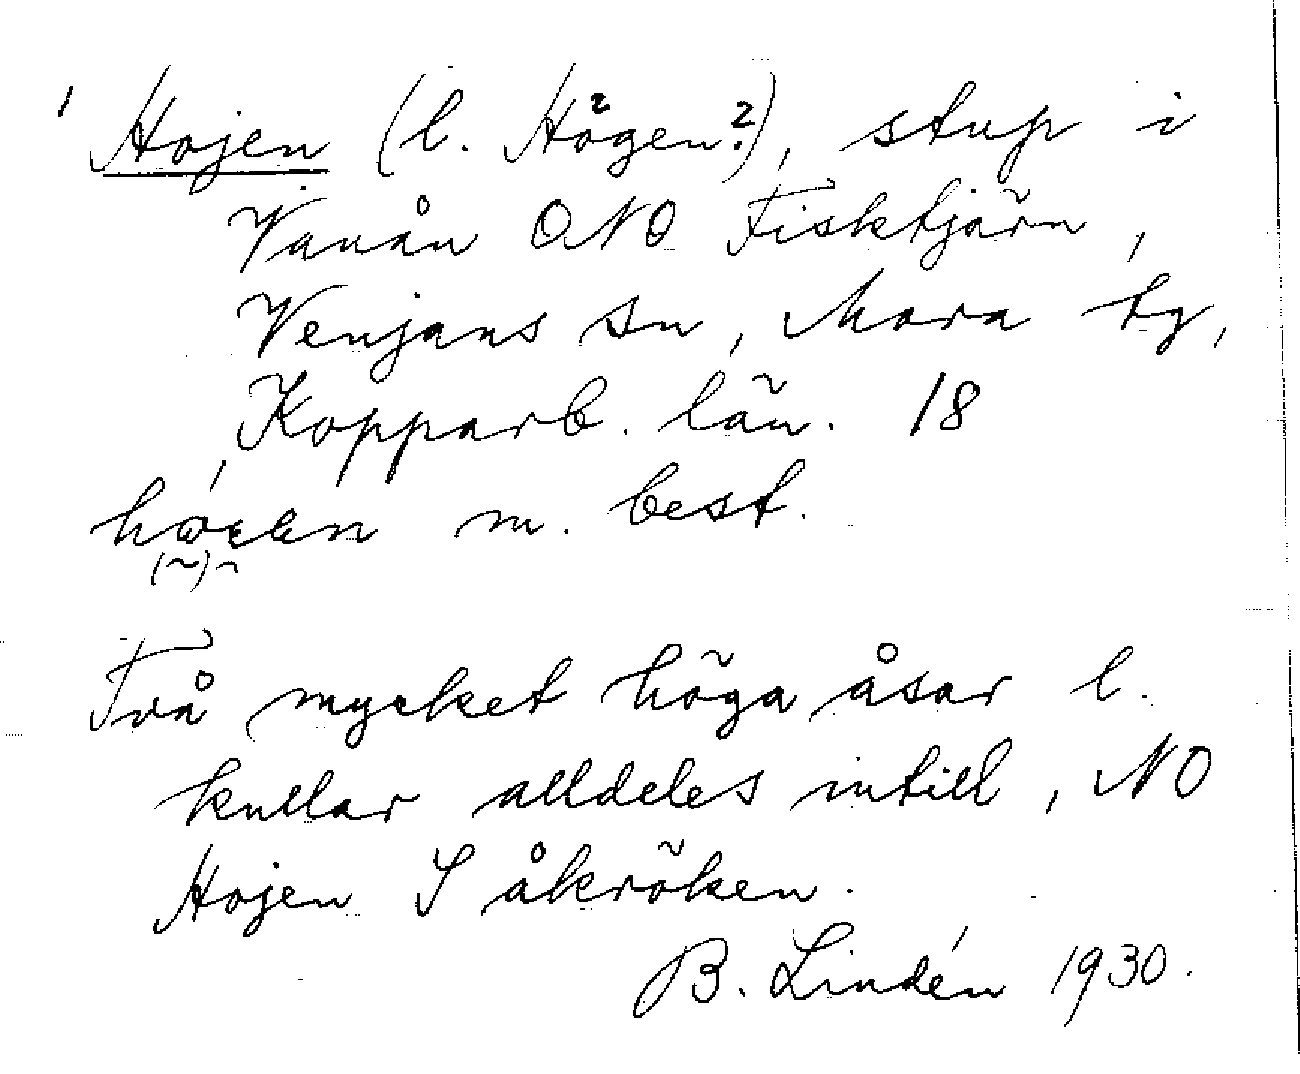 Hojen (l. Högen?), stup i
Vanån ONO Fisktjärn,
Venjans sn, Mora tg,
Kopparb. län. 18
m. best.
Två mycket höga åsar l.
kullar alldeles intill, NO
Hojen S åkröken.
B. Lindén 1930.